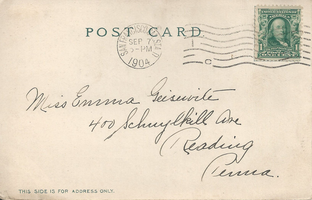 POST CARD
SEP 7
5-PM
1904
ONE CENT
Miss Emma Geisewite
400 Schuylkill Ave
Reading
Penna.
THIS SIDE IS FOR ADDRESS ONLY.